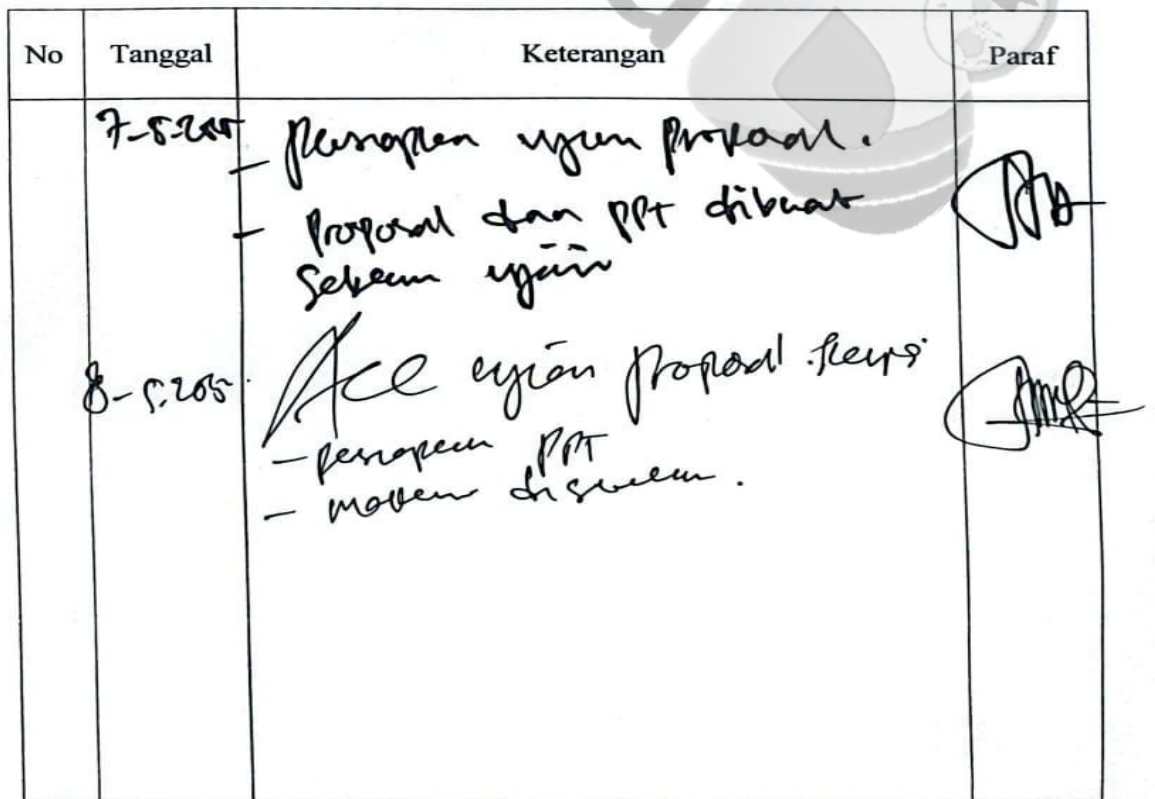 No Tanggal Keterangan Paraf
- Persiapan ujian proposal.
- Proposal dan PPT dibuat
sebelum ujian
Acc ujian proposal skripsi
- persiapan PPT
-